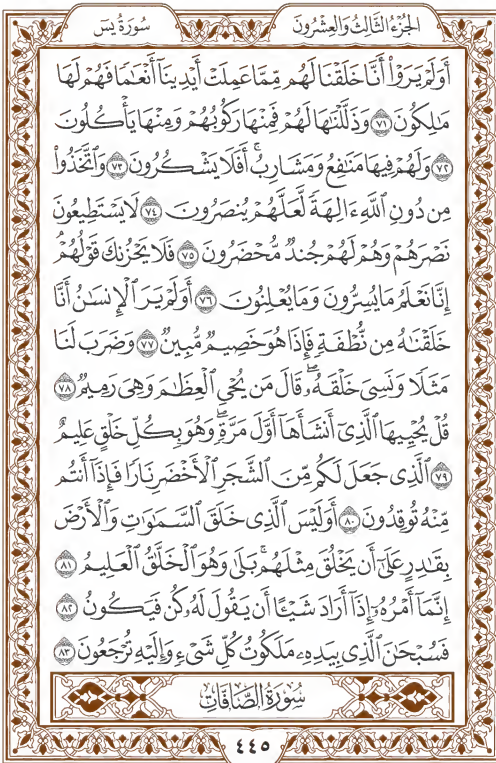 سُورَةُ يسٓ
الجُزْءُ الثَّالِثُ وَالعِشْرُونَ
أَوَلَمْ يَرَوْا۟ أَنَّا خَلَقْنَا لَهُم مِّمَّا عَمِلَتْ أَيْدِينَآ أَنْعَٰمًا فَهُمْ لَهَا
مَٰلِكُونَ ٧١ وَذَلَّلْنَٰهَا لَهُمْ فَمِنْهَا رَكُوبُهُمْ وَمِنْهَا يَأْكُلُونَ
٧٢ وَلَهُمْ فِيهَا مَنَٰفِعُ وَمَشَارِبُ ۖ أَفَلَا يَشْكُرُونَ ٧٣ وَٱتَّخَذُوا۟
مِن دُونِ ٱللَّهِ ءَالِهَةً لَّعَلَّهُمْ يُنصَرُونَ ٧٤ لَا يَسْتَطِيعُونَ
نَصْرَهُمْ وَهُمْ لَهُمْ جُندٌ مُّحْضَرُونَ ٧٥ فَلَا يَحْزُنكَ قَوْلُهُمْ ۘ
إِنَّا نَعْلَمُ مَا يُسِرُّونَ وَمَا يُعْلِنُونَ ٧٦ أَوَلَمْ يَرَ ٱلْإِنسَٰنُ أَنَّا
خَلَقْنَٰهُ مِن نُّطْفَةٍ فَإِذَا هُوَ خَصِيمٌ مُّبِينٌ ٧٧ وَضَرَبَ لَنَا
مَثَلًا وَنَسِىَ خَلْقَهُۥ ۖ قَالَ مَن يُحْىِ ٱلْعِظَٰمَ وَهِىَ رَمِيمٌ ٧٨
قُلْ يُحْيِيهَا ٱلَّذِىٓ أَنشَأَهَآ أَوَّلَ مَرَّةٍ ۖ وَهُوَ بِكُلِّ خَلْقٍ عَلِيمٌ
٧٩ ٱلَّذِى جَعَلَ لَكُم مِّنَ ٱلشَّجَرِ ٱلْأَخْضَرِ نَارًا فَإِذَآ أَنتُم
مِّنْهُ تُوقِدُونَ ٨٠ أَوَلَيْسَ ٱلَّذِى خَلَقَ ٱلسَّمَٰوَٰتِ وَٱلْأَرْضَ
بِقَٰدِرٍ عَلَىٰٓ أَن يَخْلُقَ مِثْلَهُم ۚ بَلَىٰ وَهُوَ ٱلْخَلَّٰقُ ٱلْعَلِيمُ ٨١
إِنَّمَآ أَمْرُهُۥٓ إِذَآ أَرَادَ شَيْـًٔا أَن يَقُولَ لَهُۥ كُن فَيَكُونُ ٨٢
فَسُبْحَٰنَ ٱلَّذِى بِيَدِهِۦ مَلَكُوتُ كُلِّ شَىْءٍ وَإِلَيْهِ تُرْجَعُونَ ٨٣
سُورَةُ الصَّافَّاتِ
٤٤٥